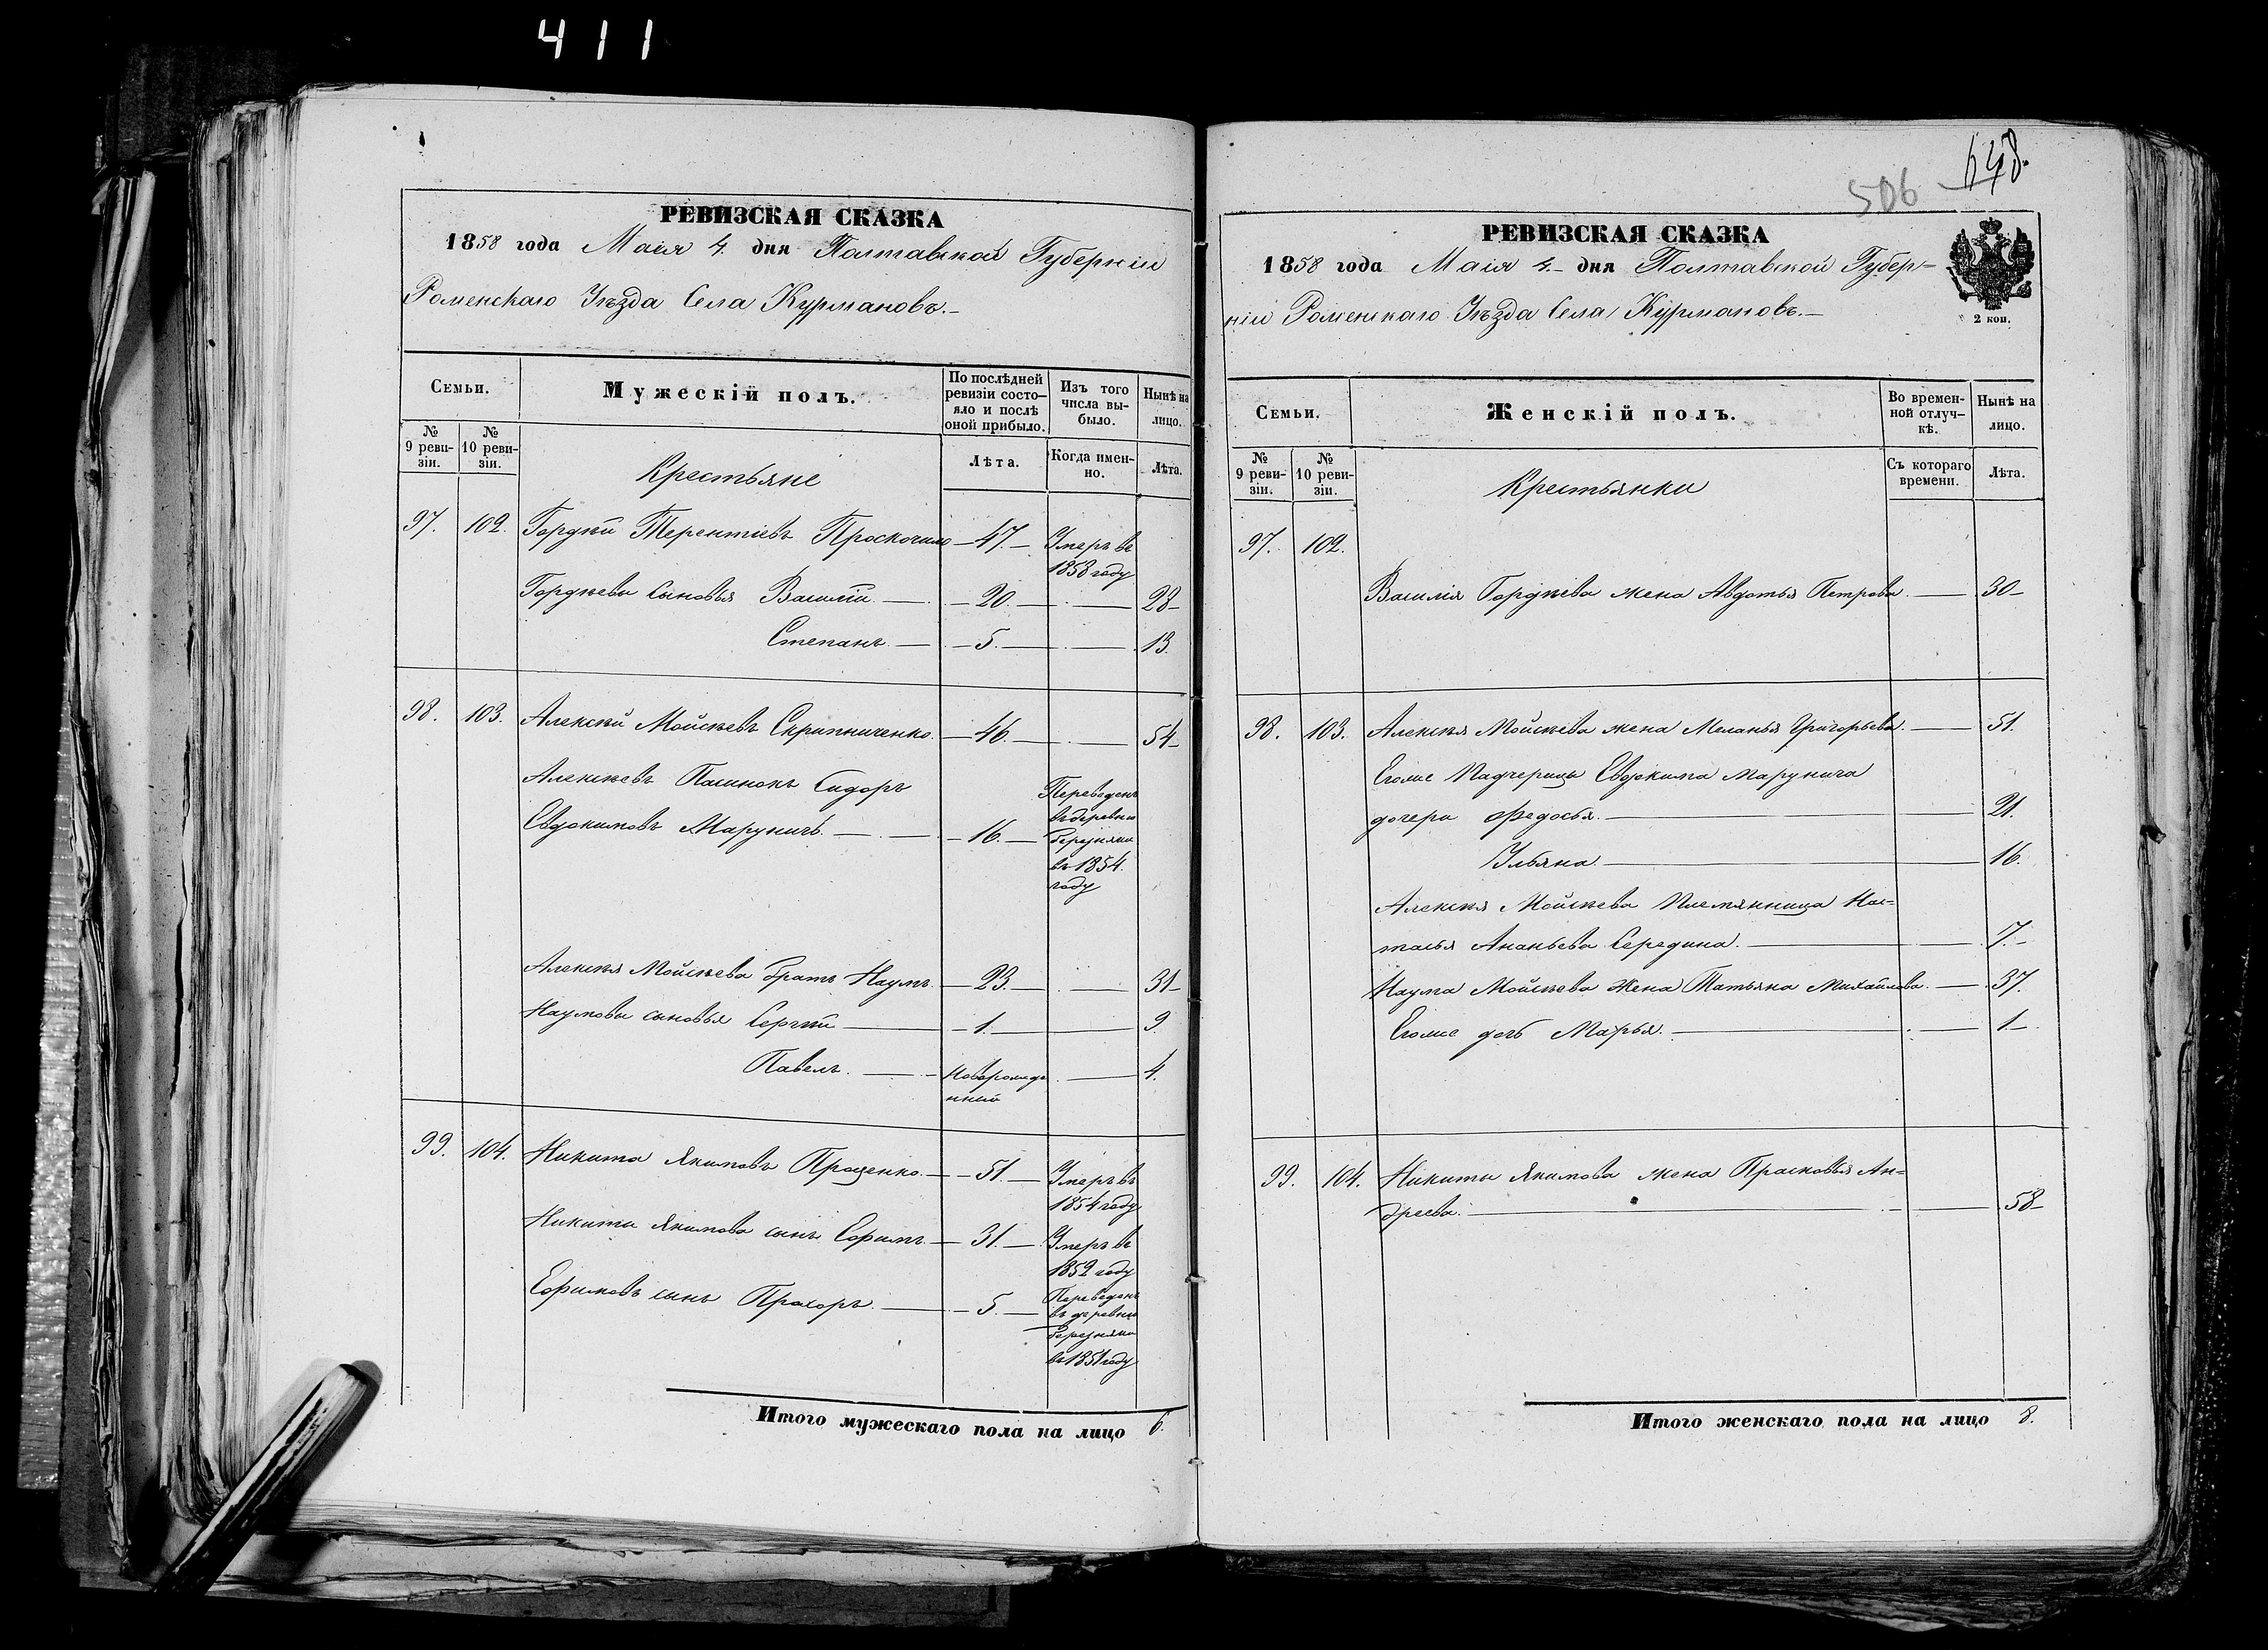 411
РЕВИЗСКАЯ СКАЗКА
1858 года Маія 4. дня Полтавской Губерніи
Роменскаго Уѣзда Села Курмановъ.
Семьи.
Мужескій полъ.
По послѣдней ревизіи состояло и послѣ оной прибыло.
Изъ того числа выбыло.
Нынѣ на лицо.
№ 9 ревизіи.
№ 10 ревизіи.
Крестьяне
Лѣта.
Когда именно.
Лѣта.
97. 102. Гордѣй Терентіевъ Проскочило 47. Умеръ въ
1858 году
Гордѣевы сыновья Василій 20. 28
Степанъ 5. 13.
98. 103. Алексѣй Мойсѣевъ Скрипниченко. 46. 54
Алексѣевъ Пасинокъ Сидоръ
Евдокимовъ Маруничъ. 16. Переведенъ
въ деревню
Березняки
въ 1854.
году
Алексѣя Мойсѣева братъ Наумъ 23. 31
Наумовы сыновья Сергѣй 1. 9.
Павелъ. Новорожде
нный 4.
99. 104. Никита Якимовъ Проценко. 51. Умеръ въ
1854 году
Никиты Якимова сынъ Ефимъ 31. Умеръ въ
1852 году
Ефимовъ сынъ Прохоръ 5. Переведенъ
въ деревню
Березняки
въ 1851 году
Итого мужескаго пола на лицо 6.
506 648.
РЕВИЗСКАЯ СКАЗКА
1858 года Маія 4. дня Полтавской Губер=
ніи Роменскаго Уѣзда Села Курмановъ.
2 коп.
Семьи.
Женскій полъ.
Во временной отлучкѣ.
Нынѣ на лицо.
№ 9 ревизіи.
№ 10 ревизіи.
Крестьянки
Съ котораго времени.
Лѣта.
97. 102.
Василія Гордѣева жена Авдотья Петрова. 30
98. 103. Алексѣя Мойсѣева жена Меланья Григорьева. 51.
Егоже Падчерицы Евдокима Марунича
дочери Федосья. 21.
Ульяна 16.
Алексѣя Мойсѣева Племянница На=
талья Ананьева Середина. 7.
Наума Мойсѣева Жена Татьяна Михайлова. 37.
Егоже дочь Марья. 1
99. 104. Никиты Якимова жена Прасковья Ан=
дреева. 58
Итого женскаго пола на лицо 8.